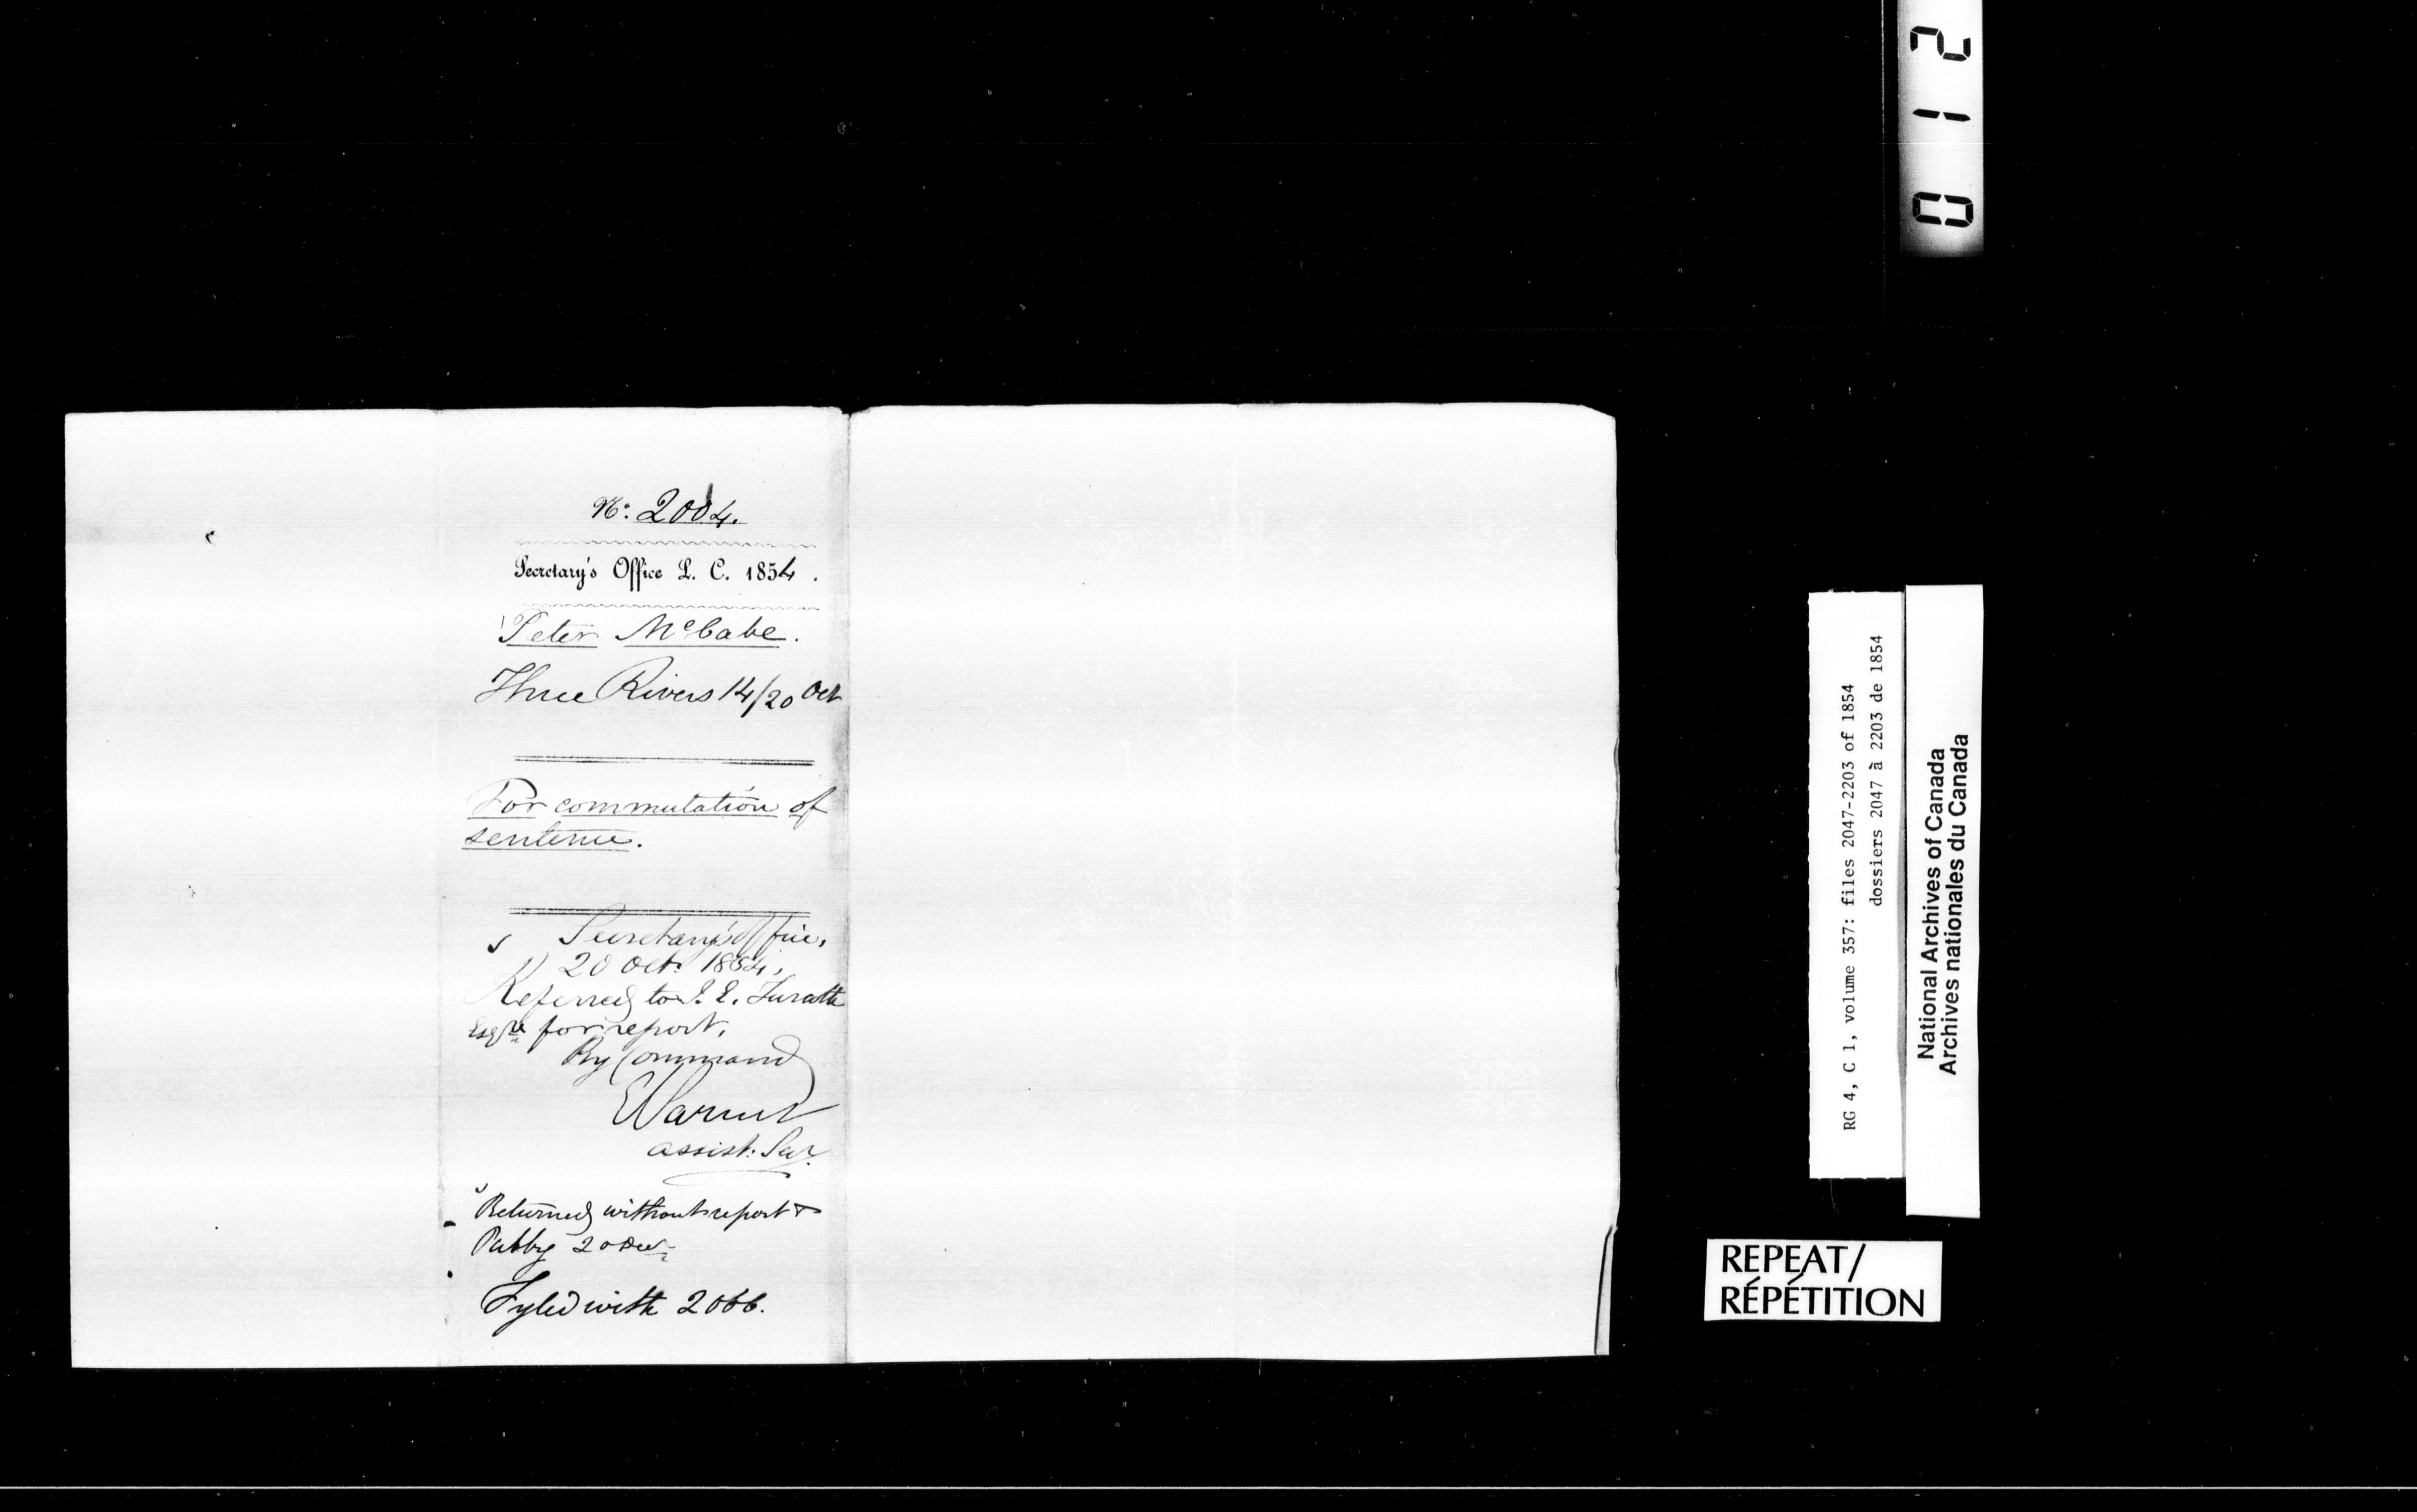 No. 2004.
Secretary's Office L. C. 1854.
Peter McCabe.
Three Rivers 14/20 Oct
For commutation of
sentence.
Secretary's Office,
20 Oct. 1854,
Referred to J. E. Turcotte
Esqre for report,
By Command
E Parent
assist. Secy.
Returned without report &
20 Decr
Fyled with 2066.
012
RG 4, C 1, volume 357: files 2047-2203 of 1854
dossiers 2047 à 2203 de 1854
National Archives of Canada
Archives nationales du Canada
REPEAT/
RÉPÉTITION